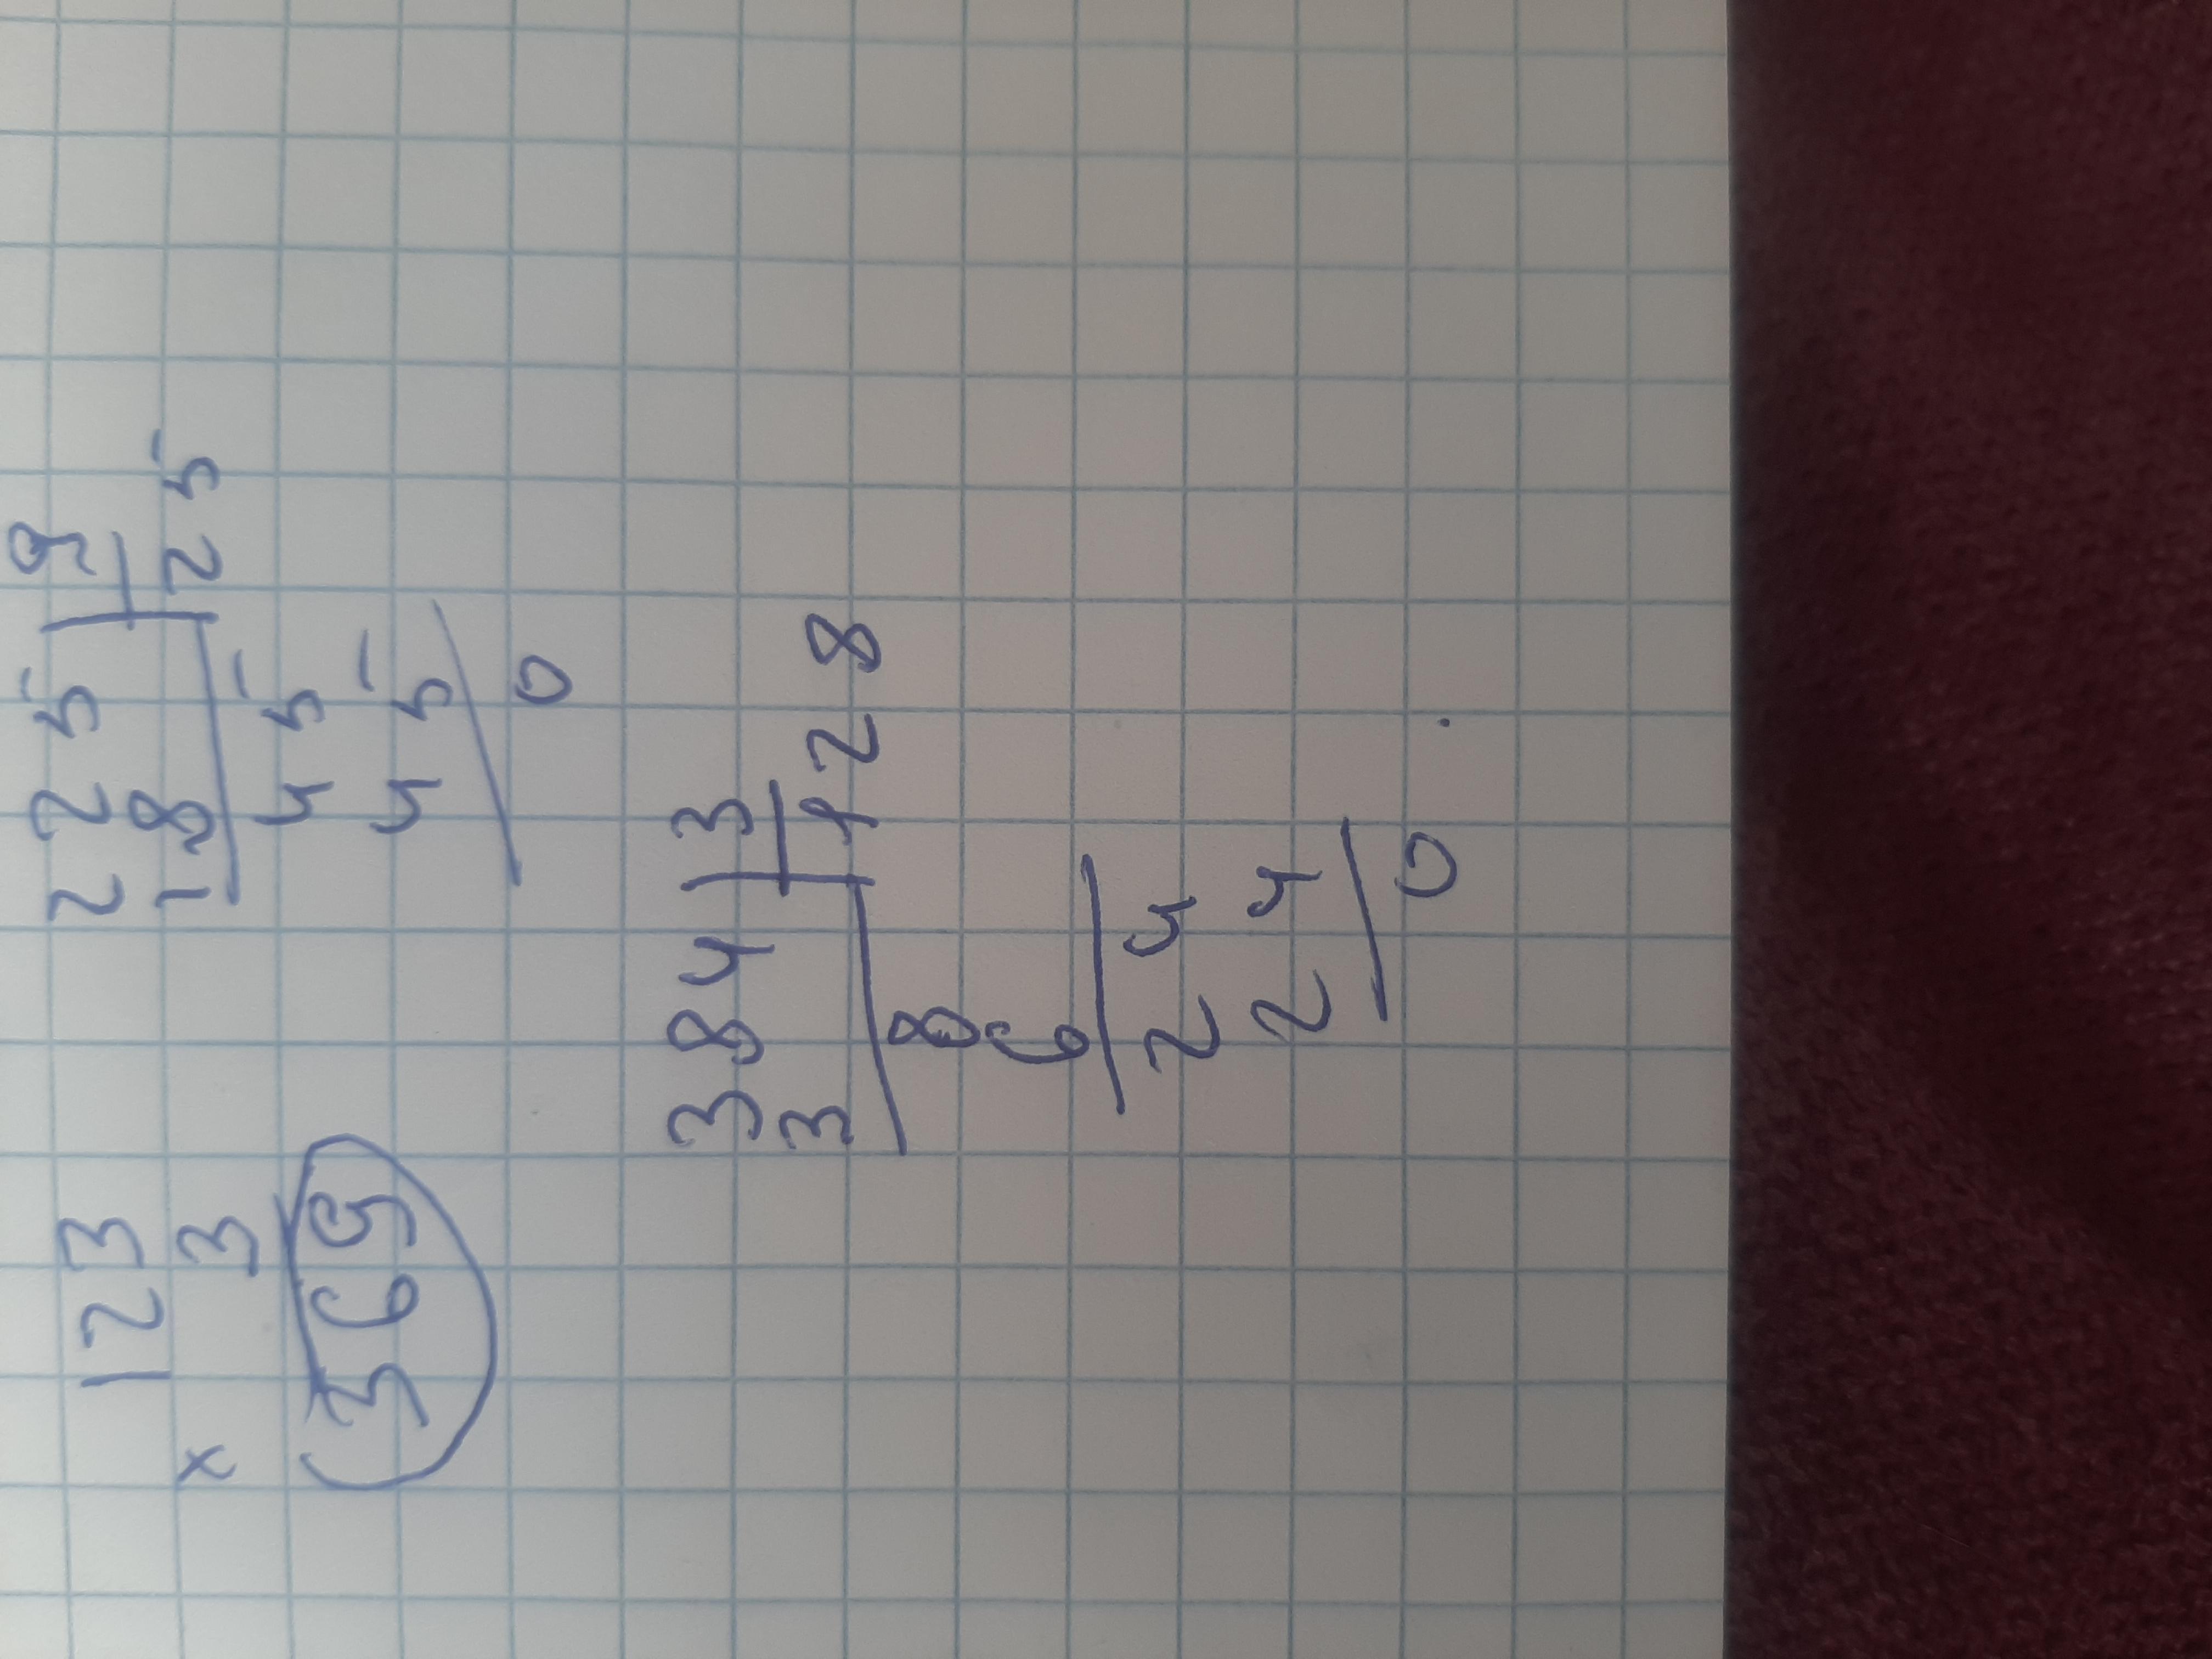 123
x 3
369
225 | 9
18 | 25
45
45
0
384 | 3
3 | 128
8
6
24
24
0